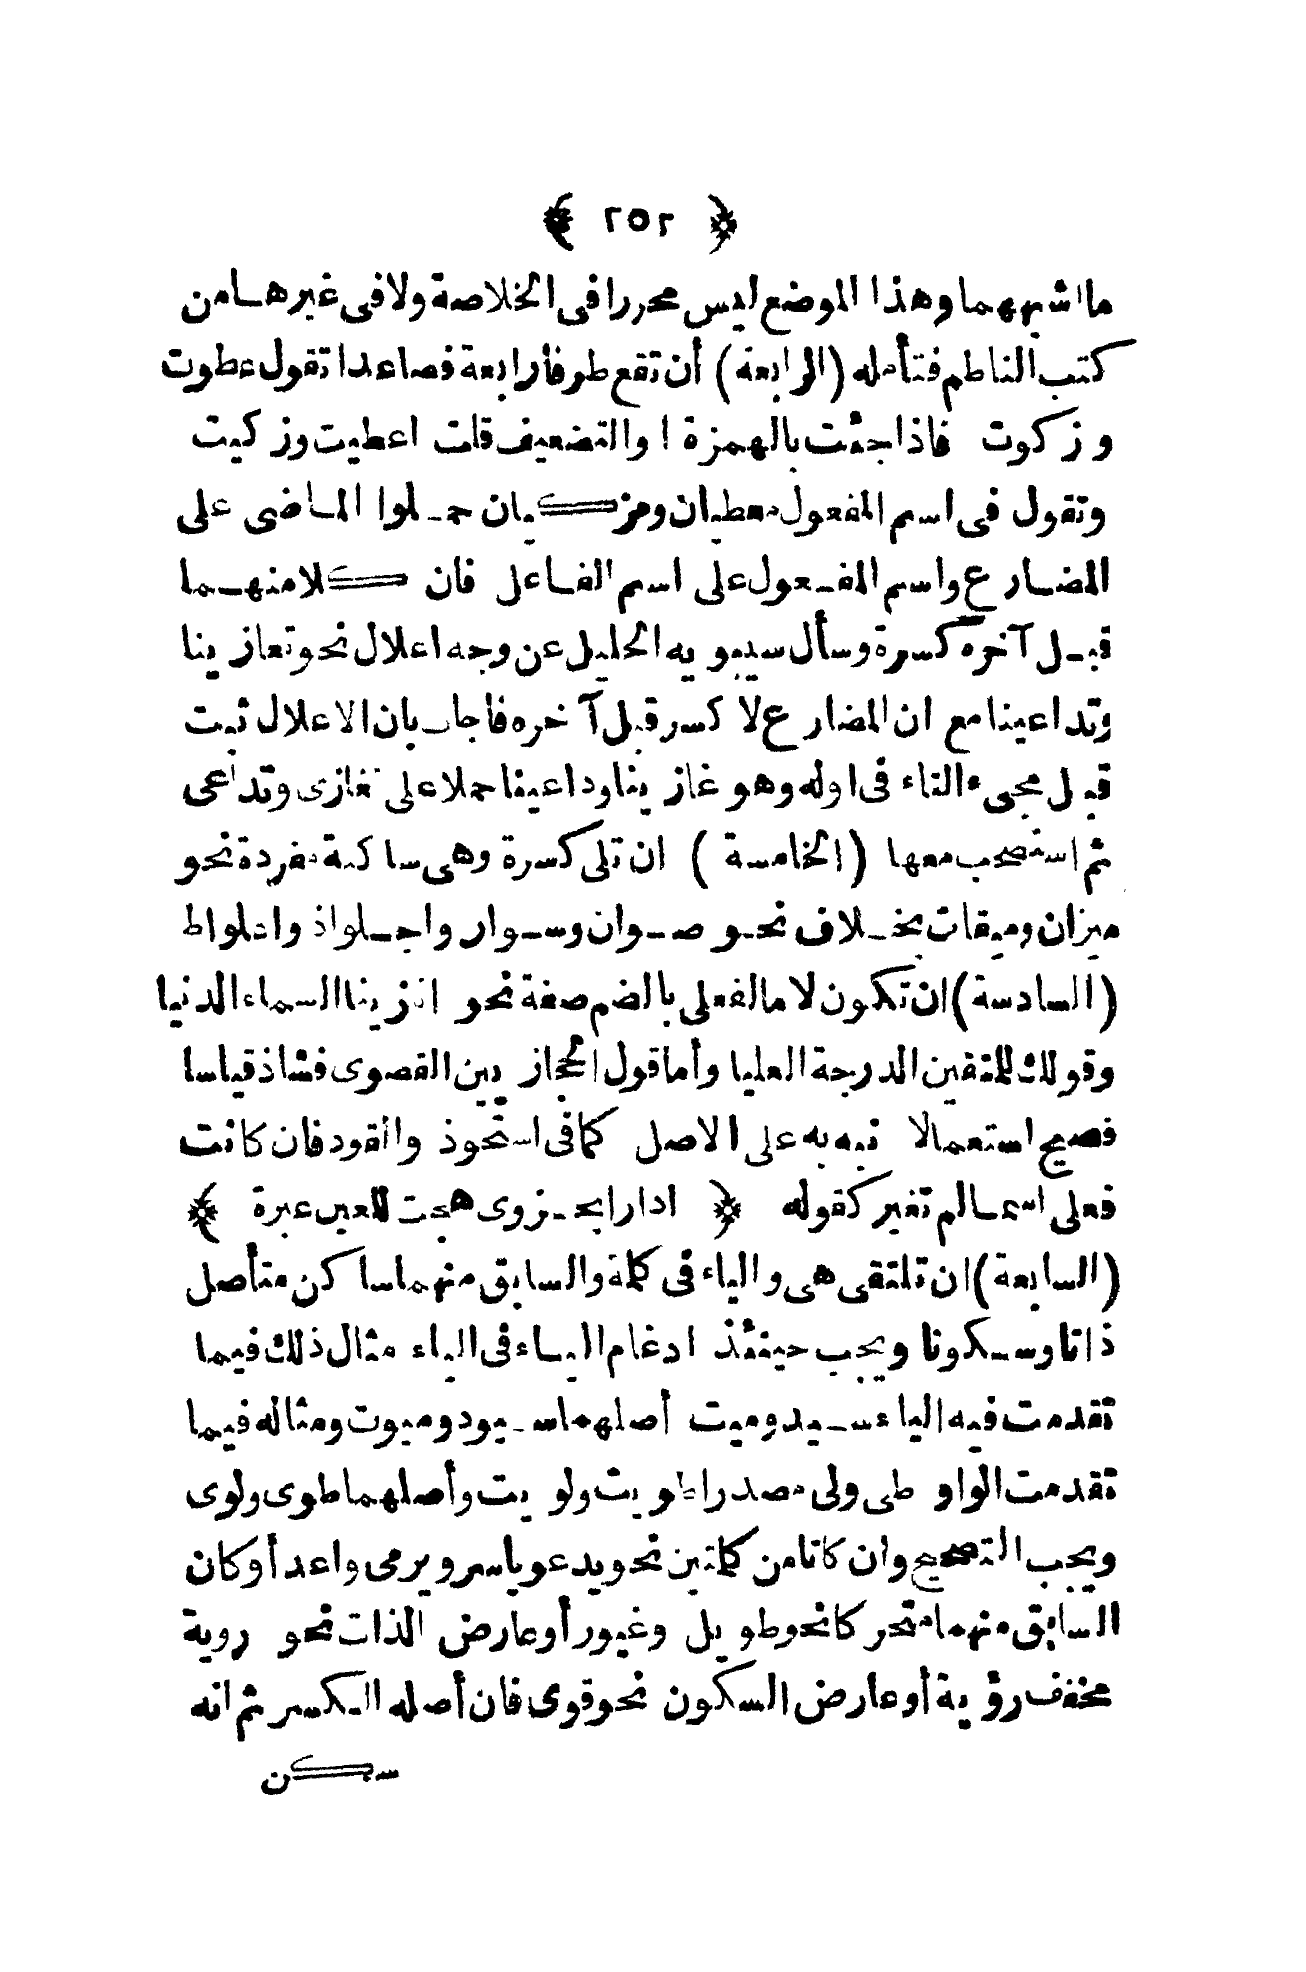 ﴿ ٢٥٢ ﴾
ما اشبههما وهذا الموضع ليس محررا فى الخلاصة ولا فى غيرها من
كتب الناظم فتأمله (الرابعة) أن تقع طرفا رابعة فصاعدا تقول عطوت
وزكوت فاذا جئت بالهمزة او التضعيف قلت اعطيت وزكيت
وتقول فى اسم المفعول معطيان ومزكيان حملوا الماضى على
المضارع واسم المفعول على اسم الفاعل فان كلا منهما
قبل آخره كسرة وسأل سيبويه الخليل عن وجه اعلال نحو تغازينا
وتداعينا مع ان المضارع لا كسر قبل آخره فأجاب بان الاعلال ثبت
قبل مجىء التاء فى اوله وهو غازينا وداعينا حملا على نغازى وتداعى
ثم استصحب معها (الخامسة) ان تلى كسرة وهى ساكنة مفردة نحو
ميزان وميقات بخلاف نحو صوان وسوار واجلواذ واعلواط
(السادسة) ان تكون لاما لفعلى بالضم صفة نحو انا زينا السماء الدنيا
وقولك للمتقين الدرجة العليا وأما قول الحجازيين القصوى فشاذ قياسا
فصيح استعمالا نبه به على الاصل كما فى استحوذ واالقود فان كانت
فعلى اسما لم تغير كقوله ﴿ ادارا بحزوى هجت للعين عبرة ﴾
(السابعة) ان تلتقى هى والياء فى كلمة والسابق منهما ساكن متأصل
ذاتا وسكونا ويجب حينئذ ادغام الياء فى الياء مثال ذلك فيما
تقدمت فيه الياء سيد وميت أصلهما سيود وميوت ومثاله فيما
تقدمت الواو طى ولى مصدرا طويت ولويت وأصلهما طوى ولوى
ويجب التصحيح وان كانا من كلمتين نحو يدعو ياسر ويرمى واعد أو كان
السابق منهما متحركا نحو طويل وغيور أو عارض الذات نحو روية
مخفف رؤية أو عارض السكون نحو قوى فان أصله الكسر ثم انه
سكن